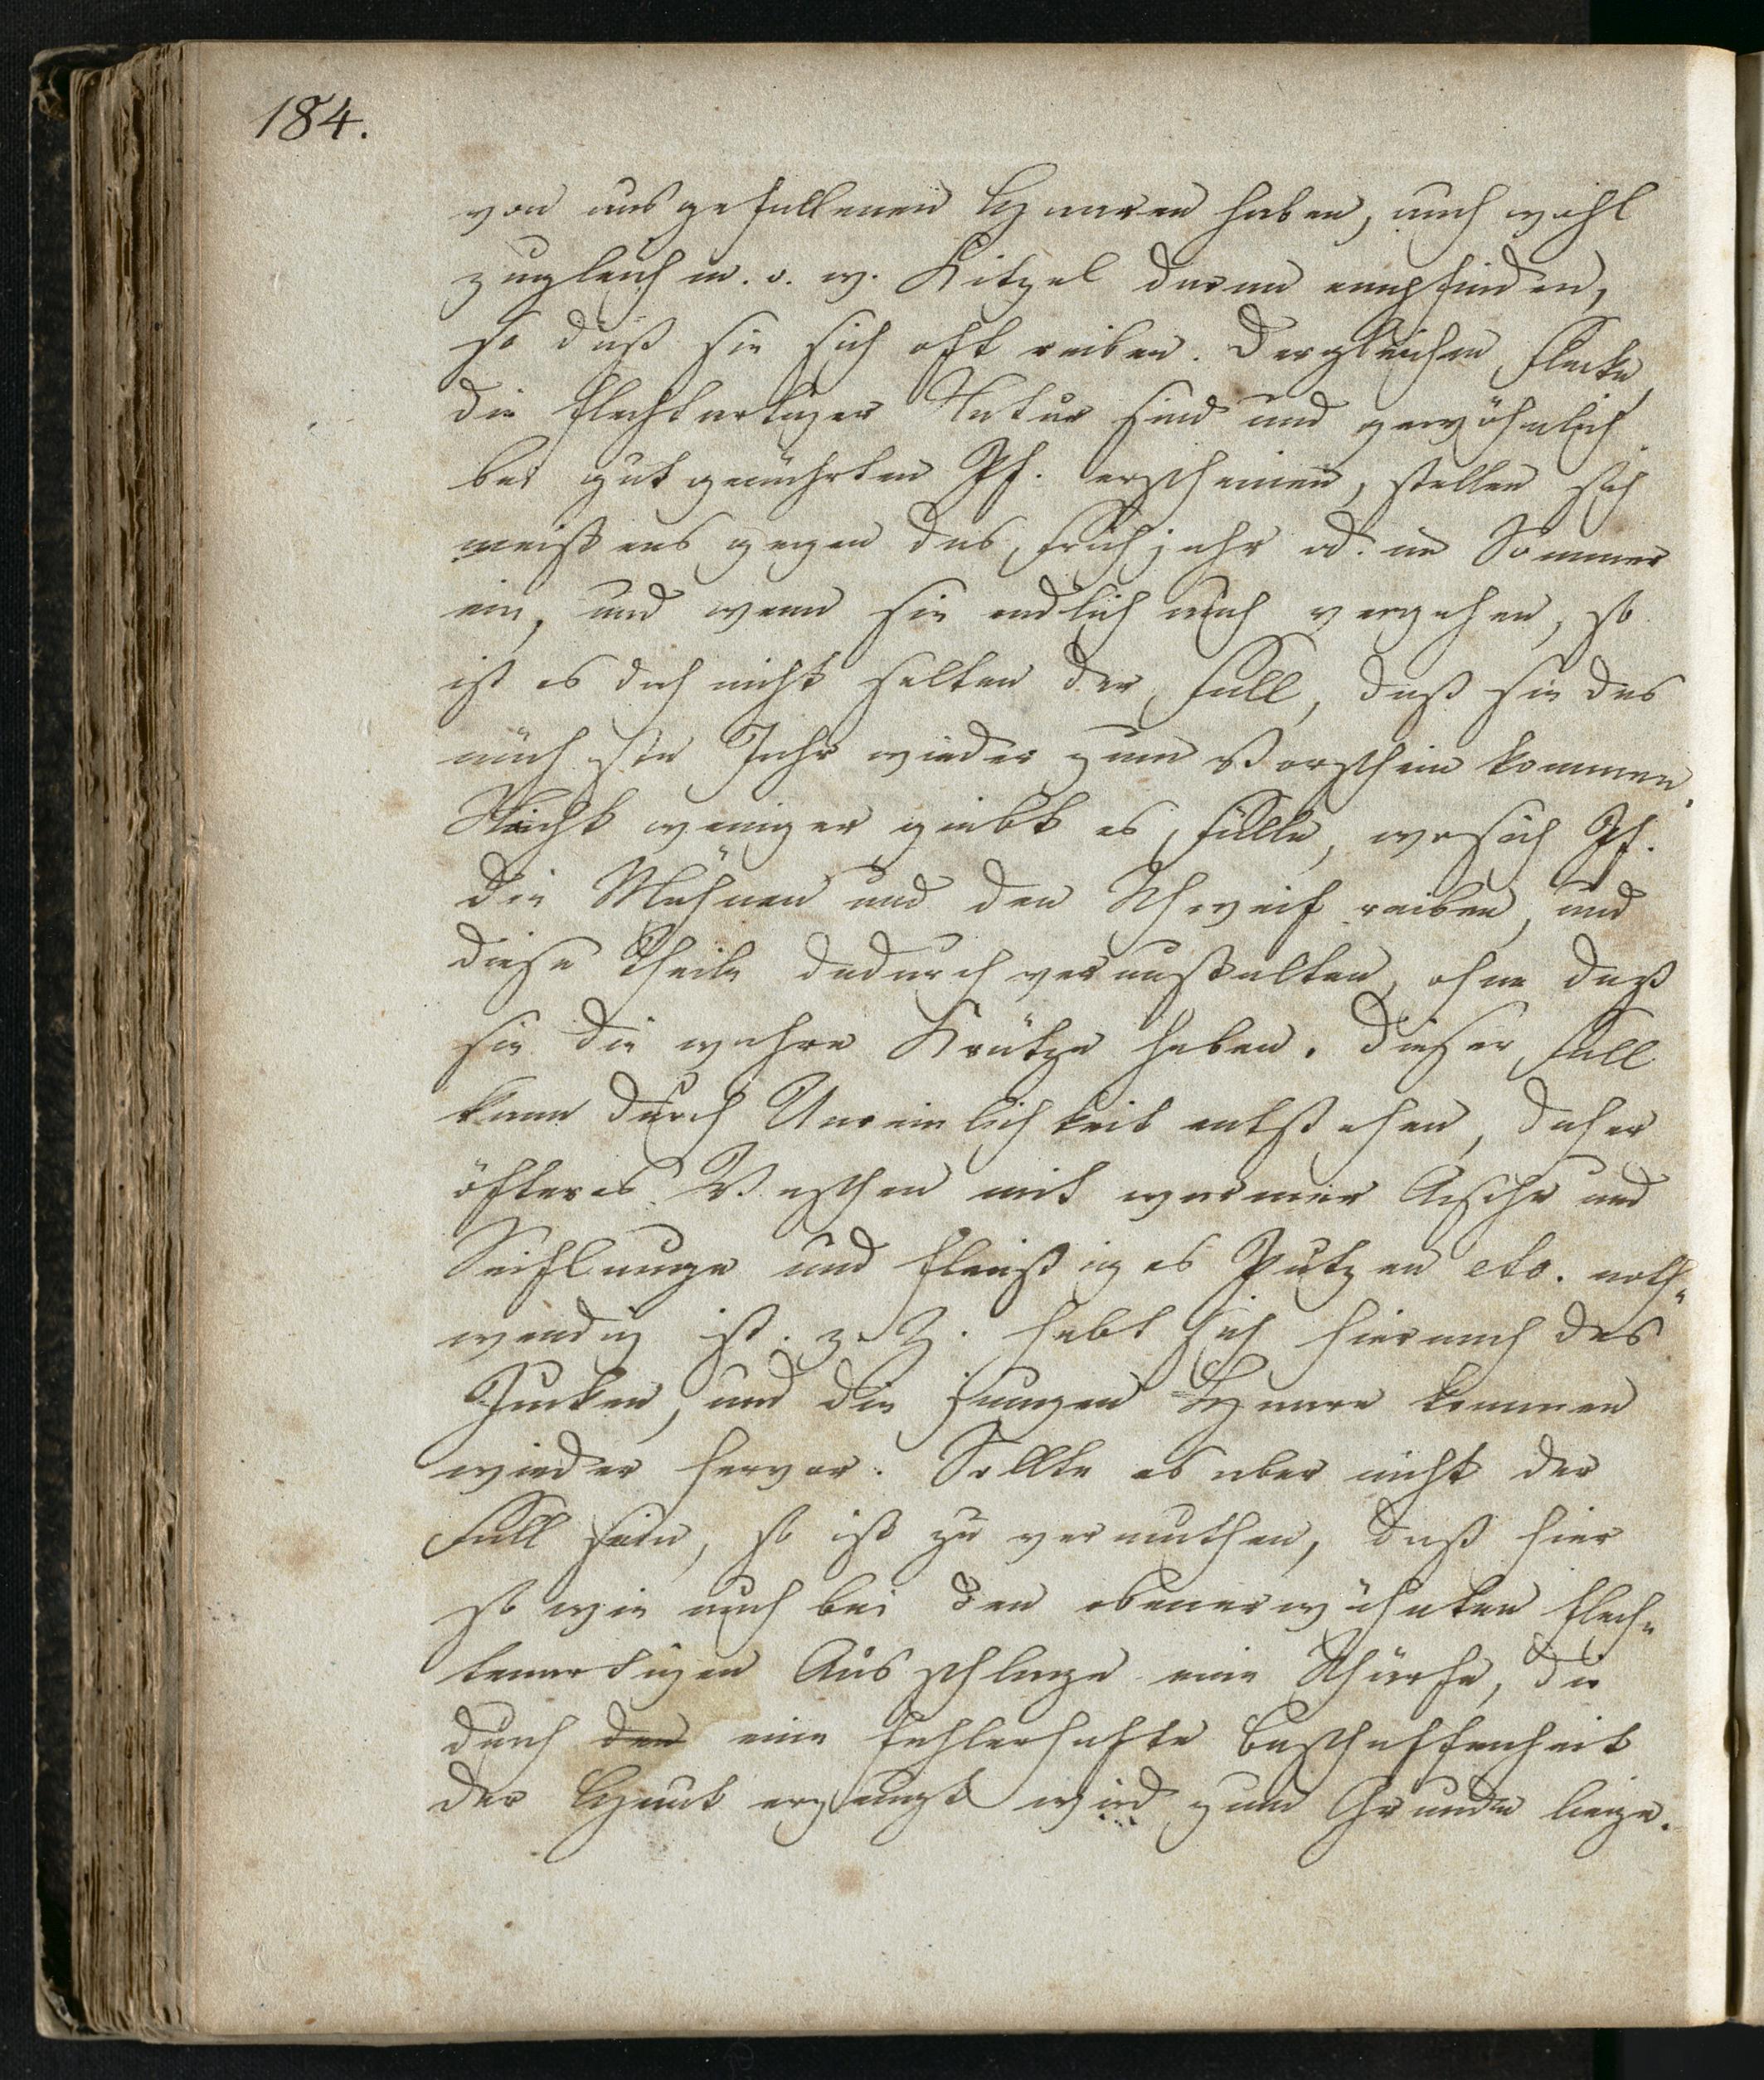 184.
von ausgefallenen Haaren haben, auch wohl
zugleich m. o. w. Kitzel daran empfinden,
so daß sie sich oft reiben. Dergleichen Flecke,
die flechtartiger Natur sind und gewöhnlich
bei gut genährten Pf. erscheinen, stellen sich
meistens gegen das Frühjahr od. im Sommer
ein, und wenn sie endlich auch vergehen, so
ist es doch nicht selten der Fall, daß sie das
nächste Jahr wieder zum Vorschein kommen.
Nicht weniger giebt es Fälle, wo sich Pf.
die Mähnen und den Schweif reiben, und
diese Theile dadurch verunstalten, ohne daß
sie die wahre Krätze haben. Dieser Fall
kann durch Unreinlichkeit entstehen, daher
öfteres Waschen mit warmer Asche und
Seiflauge und fleißiges Putzen etc. noth„
wendig ist. z. Z. hebt sich hiernach das
Jucken, und die jungen Haare kommen
wieder hervor. Sollte es aber nicht der
Fall sein, so ist zu vermuthen, daß hier
so wie auch bei den obenerwähnten flech„
tenartigen Ausschlage eine Schärfe, die
durch den eine fehlerhafte Beschaffenheit
der Haut erzeugt wird zum Grunde liege.